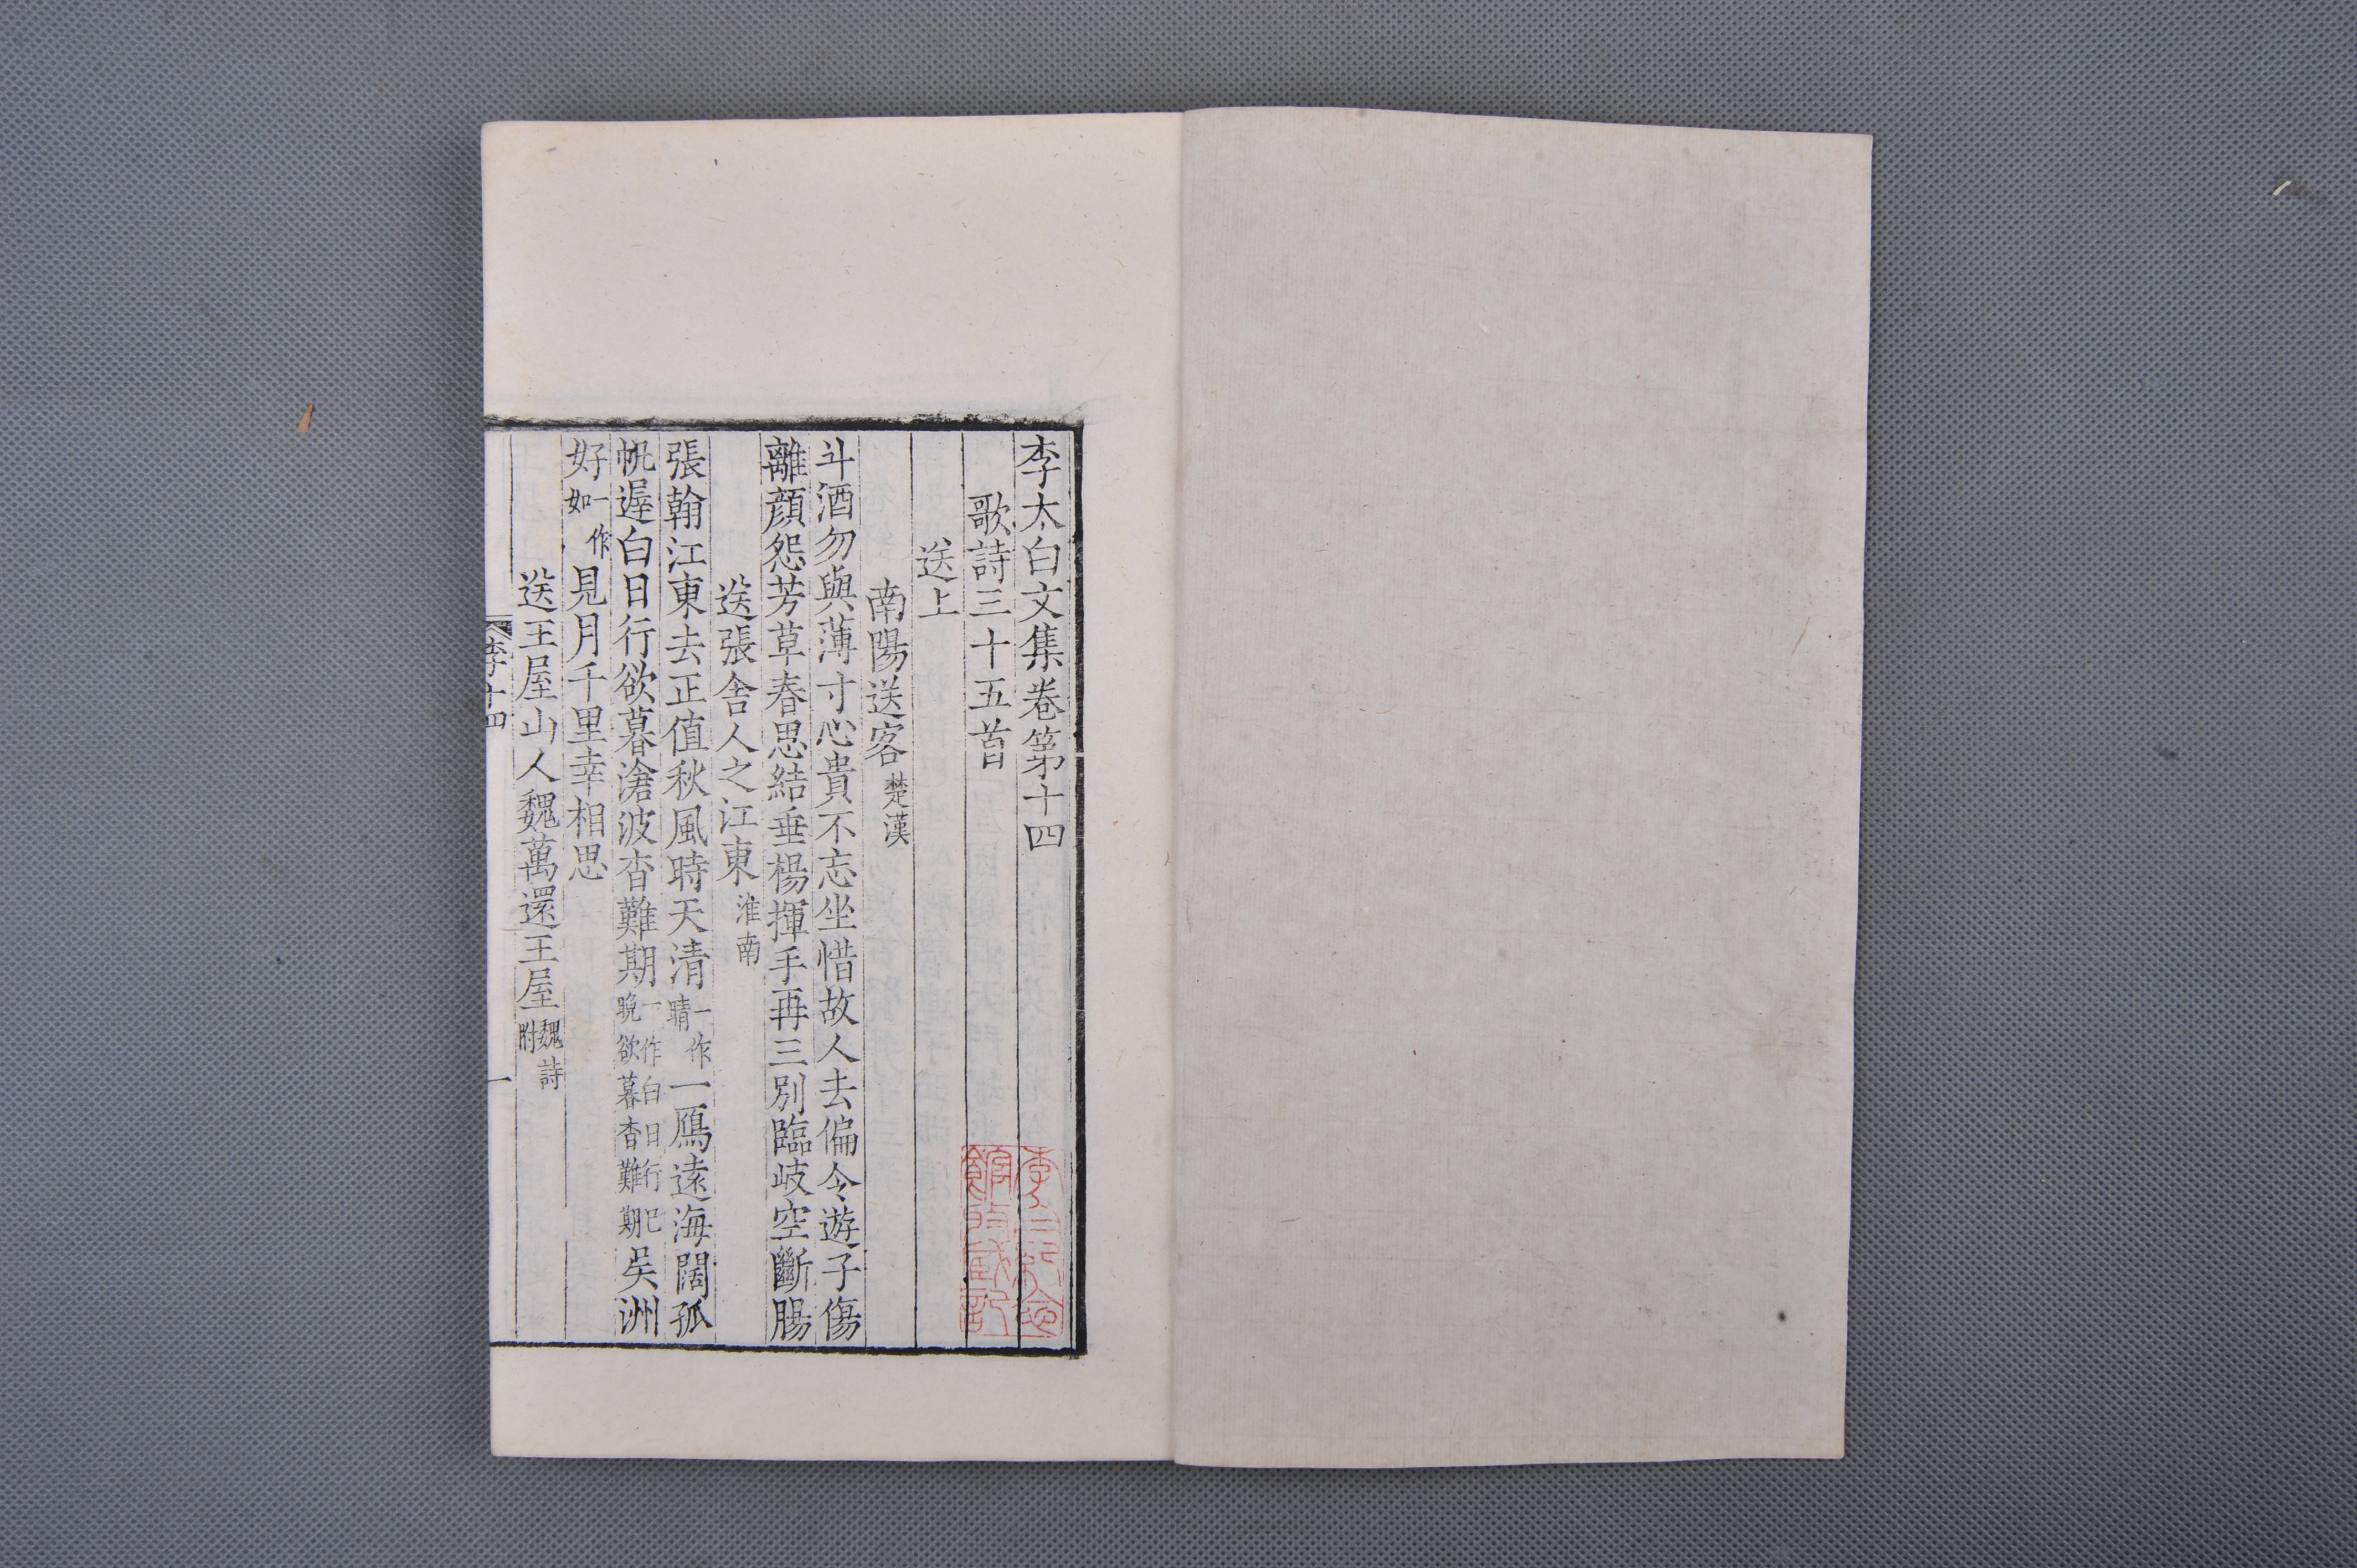 李太白文集卷第十四
歌詩三十五首
送上
南陽送客楚漢
斗酒勿與薄寸心貴不忘坐惜故人去偏令遊子傷
離顔怨芳草春思結垂楊揮手再三別臨岐空斷腸
送張舍人之江東淮南
張翰江東去正值秋風時天清一作晴一鴈遠海闊孤
帆遲白日行欲暮滄波杳難期一作白日行已晚欲暮杳難期吳洲
好一作如見月千里幸相思
送王屋山人魏萬還王屋魏詩附
李十四
一
李白紀念館收藏記